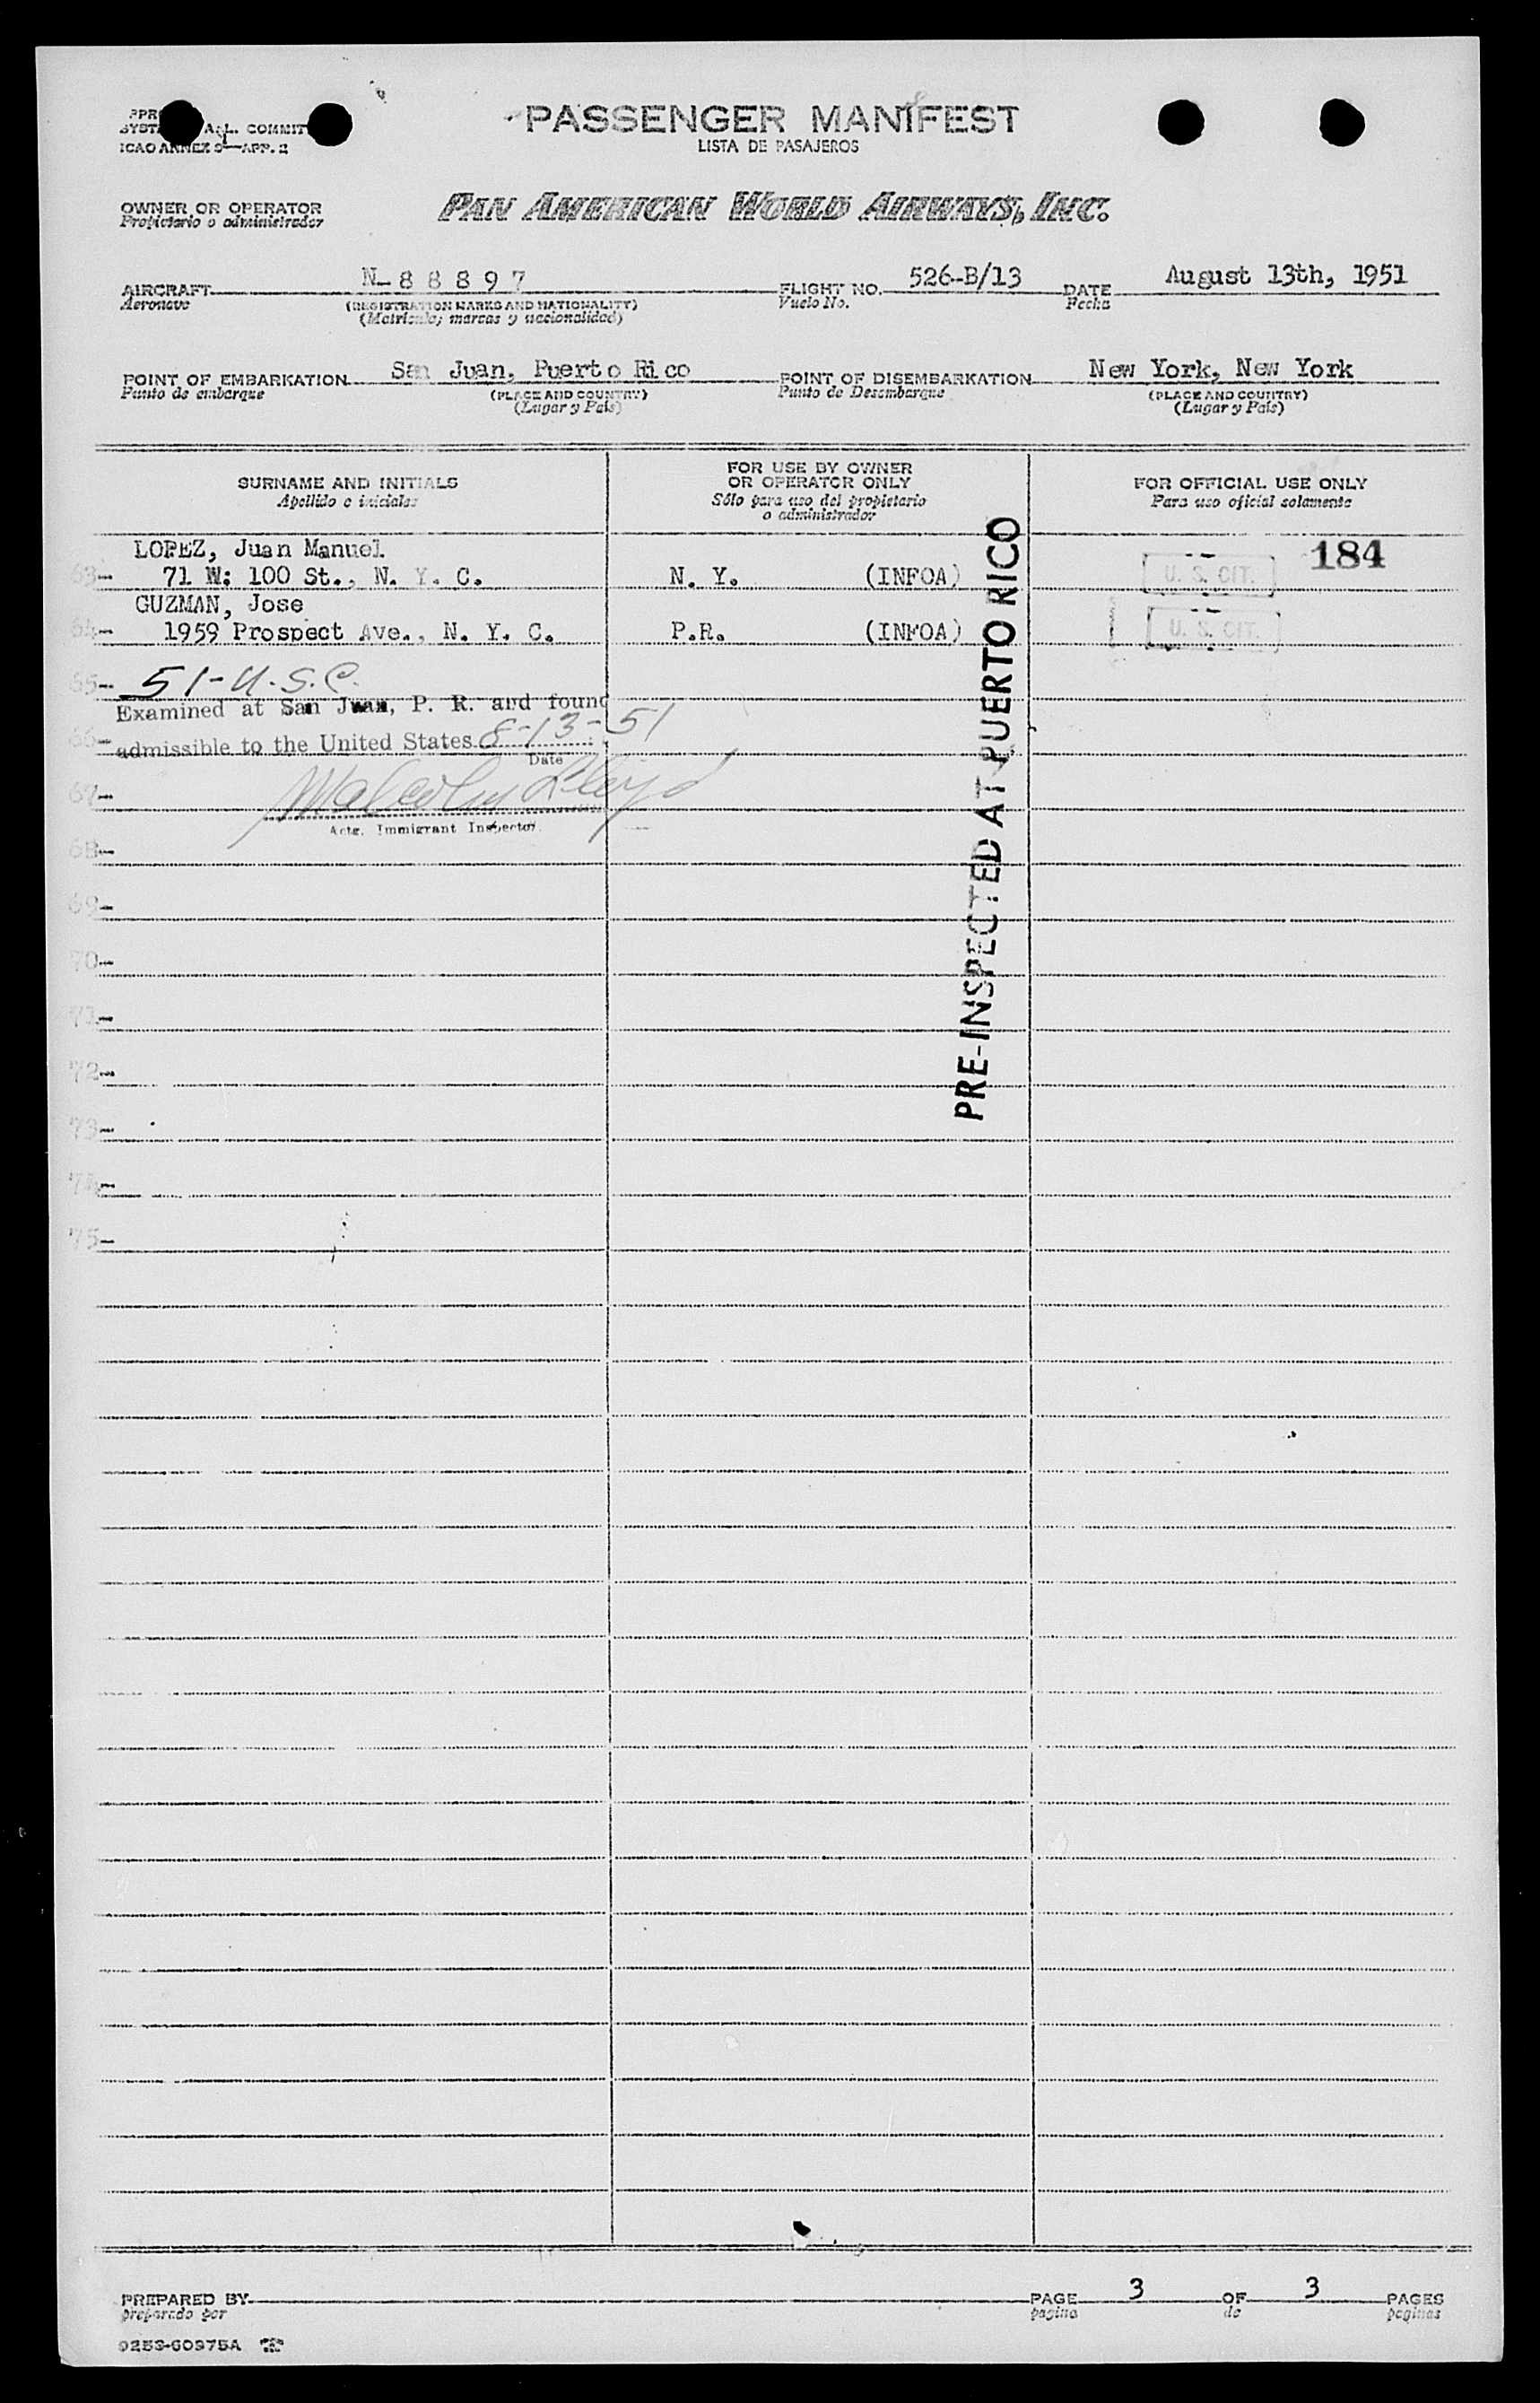 PASSENGER MANIFEST
LISTA DE PASAJEROS
COMMIT
ICAO ANNEX 9—APP. 2
OWNER OR OPERATOR
Propietario o administrador
PAN AMERICAN WORLD AIRWAYS, INC.
AIRCRAFT N-88897 FLIGHT NO. 526-B/13 DATE August 13th, 1951
Aeronave (REGISTRATION MARKS AND NATIONALITY) Vuelo No. Fecha
(Matricula; marcas y nacionalidad)
POINT OF EMBARKATION San Juan, Puerto Rico POINT OF DISEMBARKATION New York, New York
Punto de embarque (PLACE AND COUNTRY) Punto de Desembarque (PLACE AND COUNTRY)
(Lugar y País) (Lugar y País)
SURNAME AND INITIALS
Apellido e iniciales
FOR USE BY OWNER
OR OPERATOR ONLY
Sólo para uso del propietario
o administrador
FOR OFFICIAL USE ONLY
Para uso oficial solamente
LOPEZ, Juan Manuel 184
63- 71 W: 100 St., N. Y. C. N. Y. (INFOA) U. S. CIT.
GUZMAN, Jose
64- 1959 Prospect Ave., N. Y. C. P.R. (INFOA) U. S. CIT.
65- 51-U.S.C.
Examined at San Juan, P. R. and found
66- admissible to the United States 8-13-51
Date
67- Malcolm Lloyd
Actg. Immigrant Inspector.
68-
69-
70-
71-
72-
73-
74-
75-
PRE-INSPECTED AT PUERTO RICO
PREPARED BY PAGE 3 OF 3 PAGES
preparado por pagina de paginas
0253-60975A